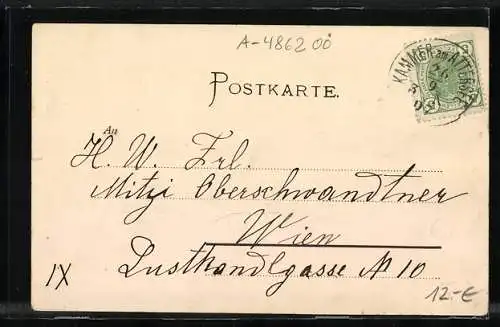 A-4862 00
POSTKARTE.
KAMMER am ATTERSEE
An
H. W. Frl.
Mitzi Oberschwandtner
Wien
IX
Lustkandlgasse N 10
12.-€